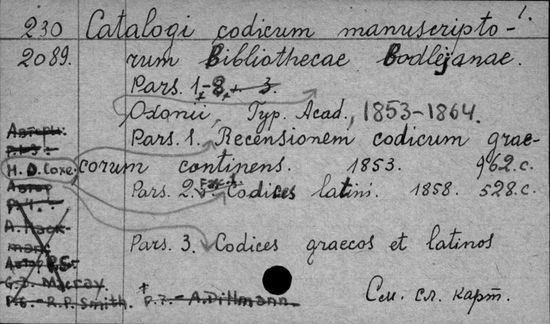 1.
230 Catalogi codicum manuscripto-
2089. rum Bibliothecae Bodlejanae.
Pars. 1-8, 3.
Oxonii, Typ. Acad., 1853-1864.
Pars. 1. Recensionem codicum grae-
H. O. Coxe. corum continens. 1853. 962.c.
Pars. 2. Fasc. 1. Codices latini. 1858. 528.c.
A. Mack-
Pars. 3. Codices graecos et latinos
G. D. Macray.
P.6.- R.P. Smith. P.7.- A. Dillmann.
См. сл. карт.